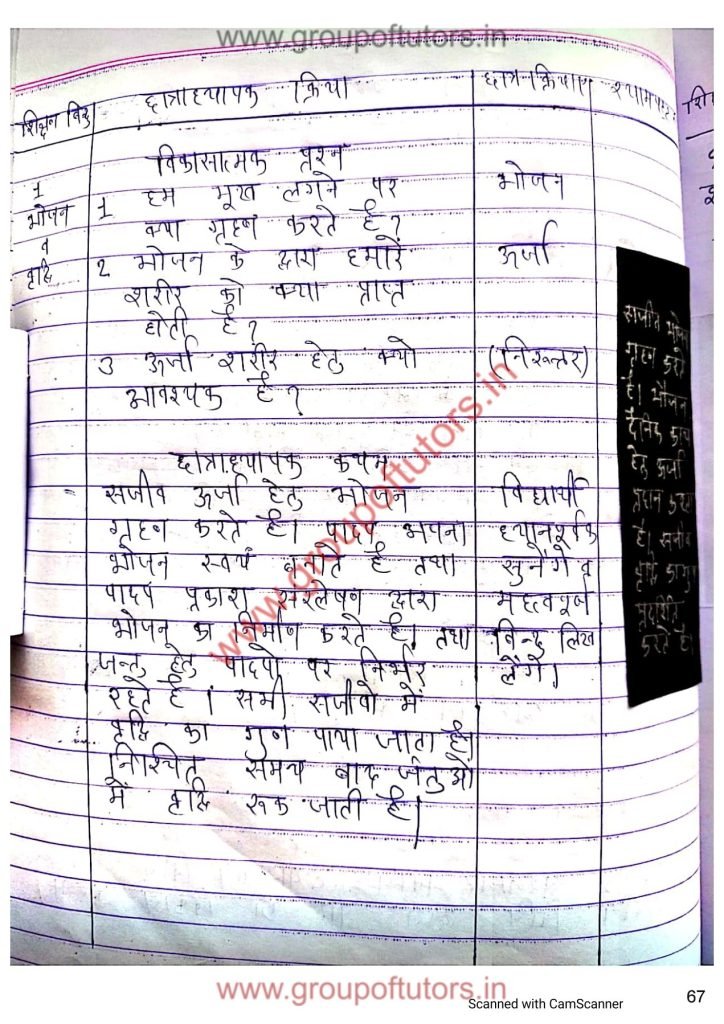 www.groupoftutors.in
शिक्षण बिन्दु
छात्राध्यापक क्रिया
छात्र क्रियाएं
श्यामपट्ट
1
भोजन
व
वृद्धि
विकासात्मक प्रश्न
1 हम भूख लगने पर
क्या ग्रहण करते है?
2 भोजन के द्वारा हमारे
शरीर को क्या प्राप्त
होती है?
3 ऊर्जा शरीर हेतु क्यो
आवश्यक है?
भोजन
ऊर्जा
(निरूत्तर)
छात्राध्यापक कथन
सजीव ऊर्जा हेतु भोजन
ग्रहण करते है। पादप अपना
भोजन स्वयं बनाते है तथा
पादप प्रकाश संश्लेषण द्वारा
भोजन का निर्माण करते है। तथा
जन्तु हेतु पादपो पर निर्भर
रहते है। सभी सजीवो में
वृद्धि का गुण पाया जाता है।
निश्चित समय बाद जंतुओं
में वृद्धि रूक जाती है।
विद्यार्थी
ध्यानपूर्वक
सुनेंगे व
महत्वपूर्ण
बिन्दु लिख
लेंगे।
सजीव भोजन
ग्रहण करते
है। भोजन
दैनिक कार्य
हेतु ऊर्जा
प्रदान करता
है। सजीव
वृद्धि का गुण
प्रदर्शित
करते है।
www.groupoftutors.in
www.groupoftutors.in
Scanned with CamScanner
67